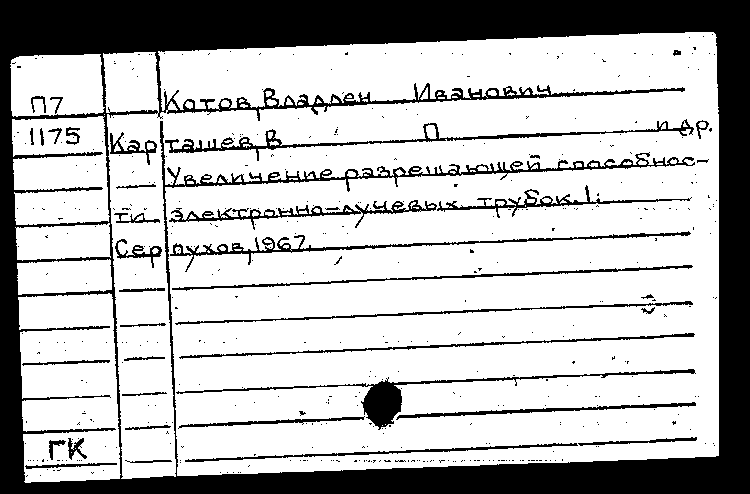 П7 Котов, Владлен Иванович
1175 Карташев, В П и др.
Увеличение разрешающей способнос-
ти электронно-лучевых трубок. 1.
Серпухов, 1967.
ГК